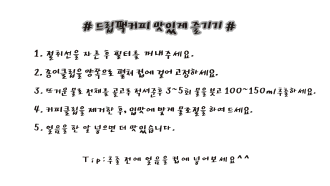 # 드립팩커피 맛있게 즐기기 #
1. 절취선을 자른 후 필터를 꺼내주세요.
2. 종이클립을 양쪽으로 펼쳐 컵에 걸어 고정하세요.
3. 뜨거운 물로 전체를 골고루 적셔준후 3~5회 물을붓고 100~150ml추출하세요.
4. 커피클립을 제거한 후, 입맛에 맞게 물조절을 하여드세요.
5. 얼음을 한 알 넣으면 더 맛있습니다.
Tip:추출 전에 얼음을 컵에 넣어보세요^^